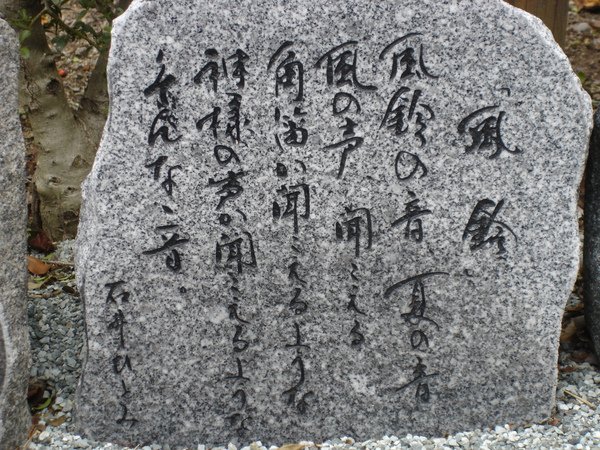 「風鈴」
風鈴の音 夏の音
風の声 聞こえる
角笛が聞こえるような
神様の声が聞こえるような
そんな音。
石井ひろみ